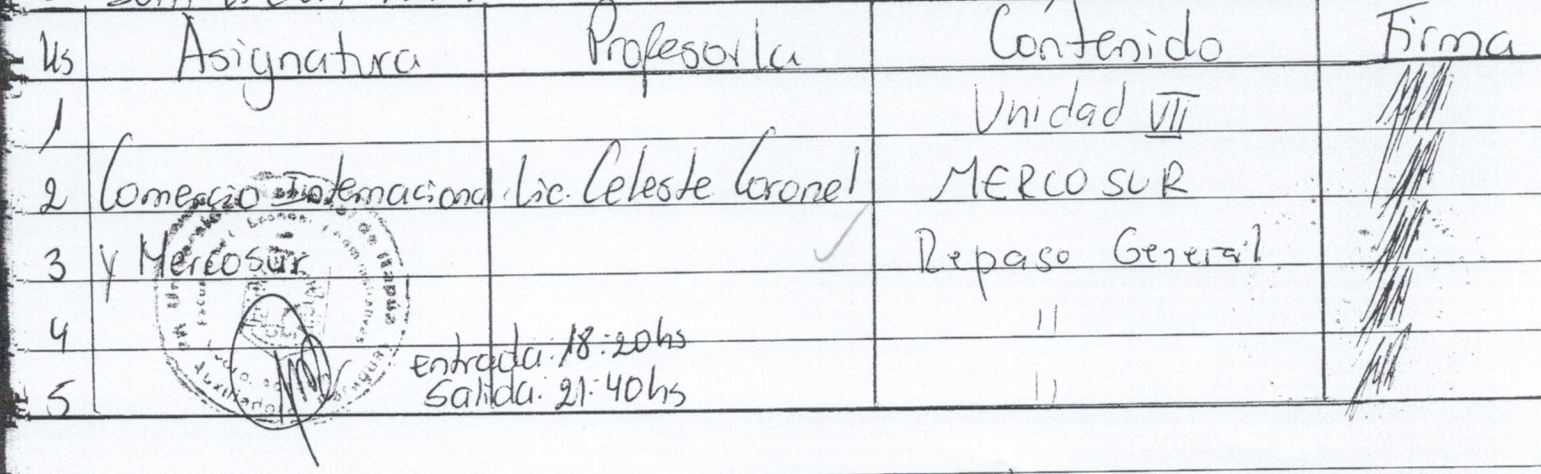 Hs Asignatura Profesor/a Contenido Firma
1 Unidad VII
2 Comercio Internacional Lic. Celeste Coronel MERCOSUR
3 y Mercosur Repaso General
4 "
entrada: 18:20hs
5 Salida: 21:40hs "